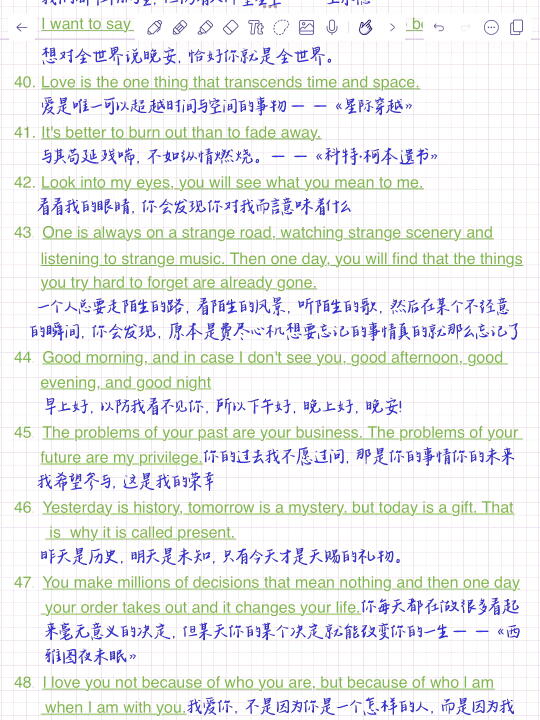 I want to say
想对全世界说晚安, 恰好你就是全世界。
40. Love is the one thing that transcends time and space.
爱是唯一可以超越时间与空间的事物——《星际穿越》
41. It's better to burn out than to fade away.
与其苟延残喘, 不如纵情燃烧。——《科特·柯本遗书》
42. Look into my eyes, you will see what you mean to me.
看看我的眼睛, 你会发现你对我而言意味着什么
43 One is always on a strange road, watching strange scenery and
listening to strange music. Then one day, you will find that the things
you try hard to forget are already gone.
一个人总要走陌生的路, 看陌生的风景, 听陌生的歌, 然后在某个不经意
的瞬间, 你会发现, 原本是费尽心机想要忘记的事情真的就那么忘记了
44 Good morning, and in case I don't see you, good afternoon, good
evening, and good night
早上好, 以防我看不见你, 所以下午好, 晚上好, 晚安!
45 The problems of your past are your business. The problems of your
future are my privilege.你的过去我不愿过问, 那是你的事情你的未来
我希望参与, 这是我的荣幸
46 Yesterday is history, tomorrow is a mystery. but today is a gift. That
is why it is called present.
昨天是历史, 明天是未知, 只有今天才是天赐的礼物。
47 You make millions of decisions that mean nothing and then one day
your order takes out and it changes your life.你每天都在做很多看起
来毫无意义的决定, 但某天你的某个决定就能改变你的一生——《西
雅图夜未眠》
48 I love you not because of who you are, but because of who I am
when I am with you.我爱你, 不是因为你是一个怎样的人, 而是因为我